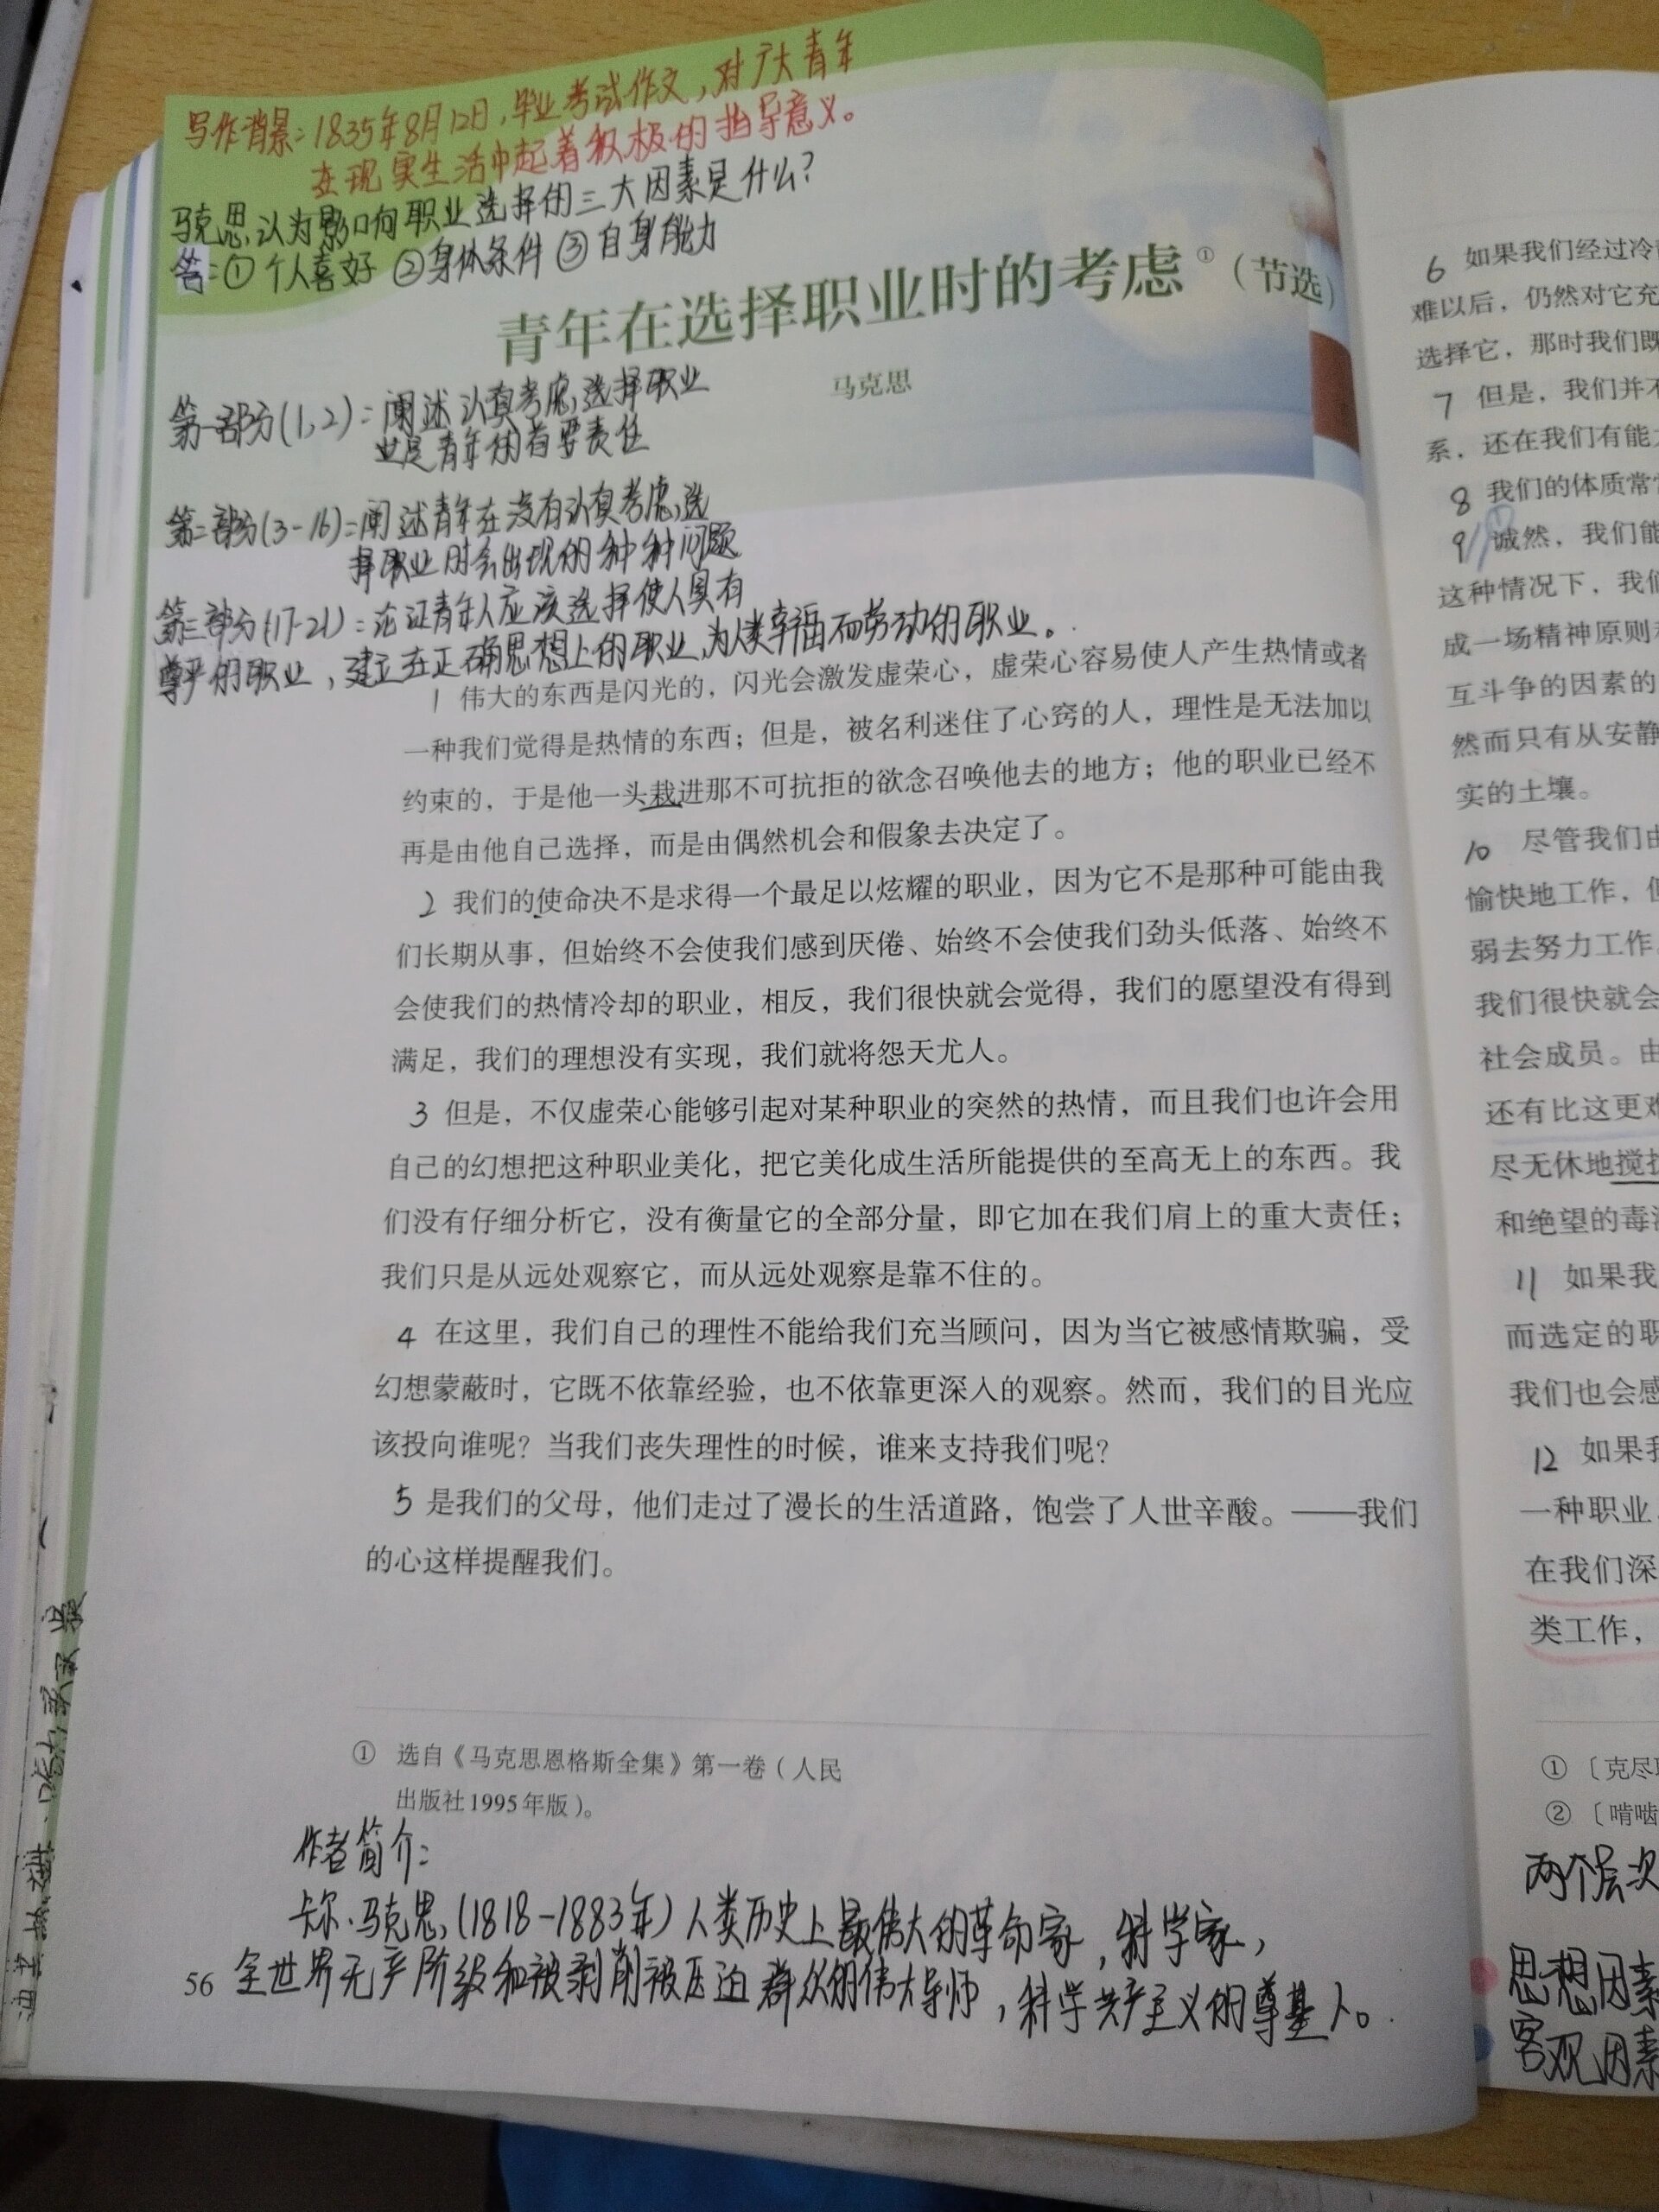 写作背景:1835年8月12日,毕业考试作文,对广大青年
在现实生活中起着积极的指导意义。
马克思认为影响职业选择的三大因素是什么?
答:①个人喜好 ②身体条件 ③自身能力
青年在选择职业时的考虑①(节选)
马克思
第一部分(1,2):阐述认真考虑,选择职业
这是青年的首要责任
第二部分(3-16):阐述青年在没有认真考虑,选
择职业时会出现的种种问题
第三部分(17-21):论证青年人应该选择使人具有
尊严的职业,建立在正确思想上的职业,为人类幸福而劳动的职业。
1 伟大的东西是闪光的,闪光会激发虚荣心,虚荣心容易使人产生热情或者
一种我们觉得是热情的东西;但是,被名利迷住了心窍的人,理性是无法加以
约束的,于是他一头栽进那不可抗拒的欲念召唤他去的地方;他的职业已经不
再是由他自己选择,而是由偶然机会和假象去决定了。
2 我们的使命决不是求得一个最足以炫耀的职业,因为它不是那种可能由我
们长期从事,但始终不会使我们感到厌倦、始终不会使我们劲头低落、始终不
会使我们的热情冷却的职业,相反,我们很快就会觉得,我们的愿望没有得到
满足,我们的理想没有实现,我们就将怨天尤人。
3 但是,不仅虚荣心能够引起对某种职业的突然的热情,而且我们也许会用
自己的幻想把这种职业美化,把它美化成生活所能提供的至高无上的东西。我
们没有仔细分析它,没有衡量它的全部分量,即它加在我们肩上的重大责任;
我们只是从远处观察它,而从远处观察是靠不住的。
4 在这里,我们自己的理性不能给我们充当顾问,因为当它被感情欺骗,受
幻想蒙蔽时,它既不依靠经验,也不依靠更深入的观察。然而,我们的目光应
该投向谁呢?当我们丧失理性的时候,谁来支持我们呢?
5 是我们的父母,他们走过了漫长的生活道路,饱尝了人世辛酸。——我们
的心这样提醒我们。
① 选自《马克思恩格斯全集》第一卷(人民
出版社1995年版)。
作者简介:
卡尔·马克思,(1818-1883年)人类历史上最伟大的革命家,科学家,
全世界无产阶级和被剥削被压迫群众的伟大导师,科学共产主义的尊基人。
56
6 如果我们经过冷
难以后,仍然对它充
选择它,那时我们既
7 但是,我们并不
系,还在我们有能
8 我们的体质常
9 诚然,我们能
这种情况下,我们
成一场精神原则
互斗争的因素的
然而只有从安静
实的土壤。
10 尽管我们由
愉快地工作,但
弱去努力工作
我们很快就会
社会成员。由
还有比这更难
尽无休地搅
和绝望的毒
11 如果我
而选定的职
我们也会感
12 如果我
一种职业
在我们深
类工作,
① 〔克尽
② 〔啃啮
两个层次
思想因素
客观因素